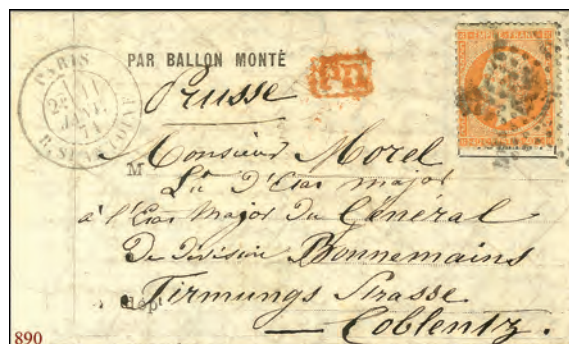 PARIS
11
JANV.
71
R. ST ANTOINE
PAR BALLON MONTÉ
PD
Prusse
M Monsieur Morel
Lt d'Etat major
à l'Etat Major du Général
De division Bonnemains
dépt Firmungs Strasse
Coblentz.
890